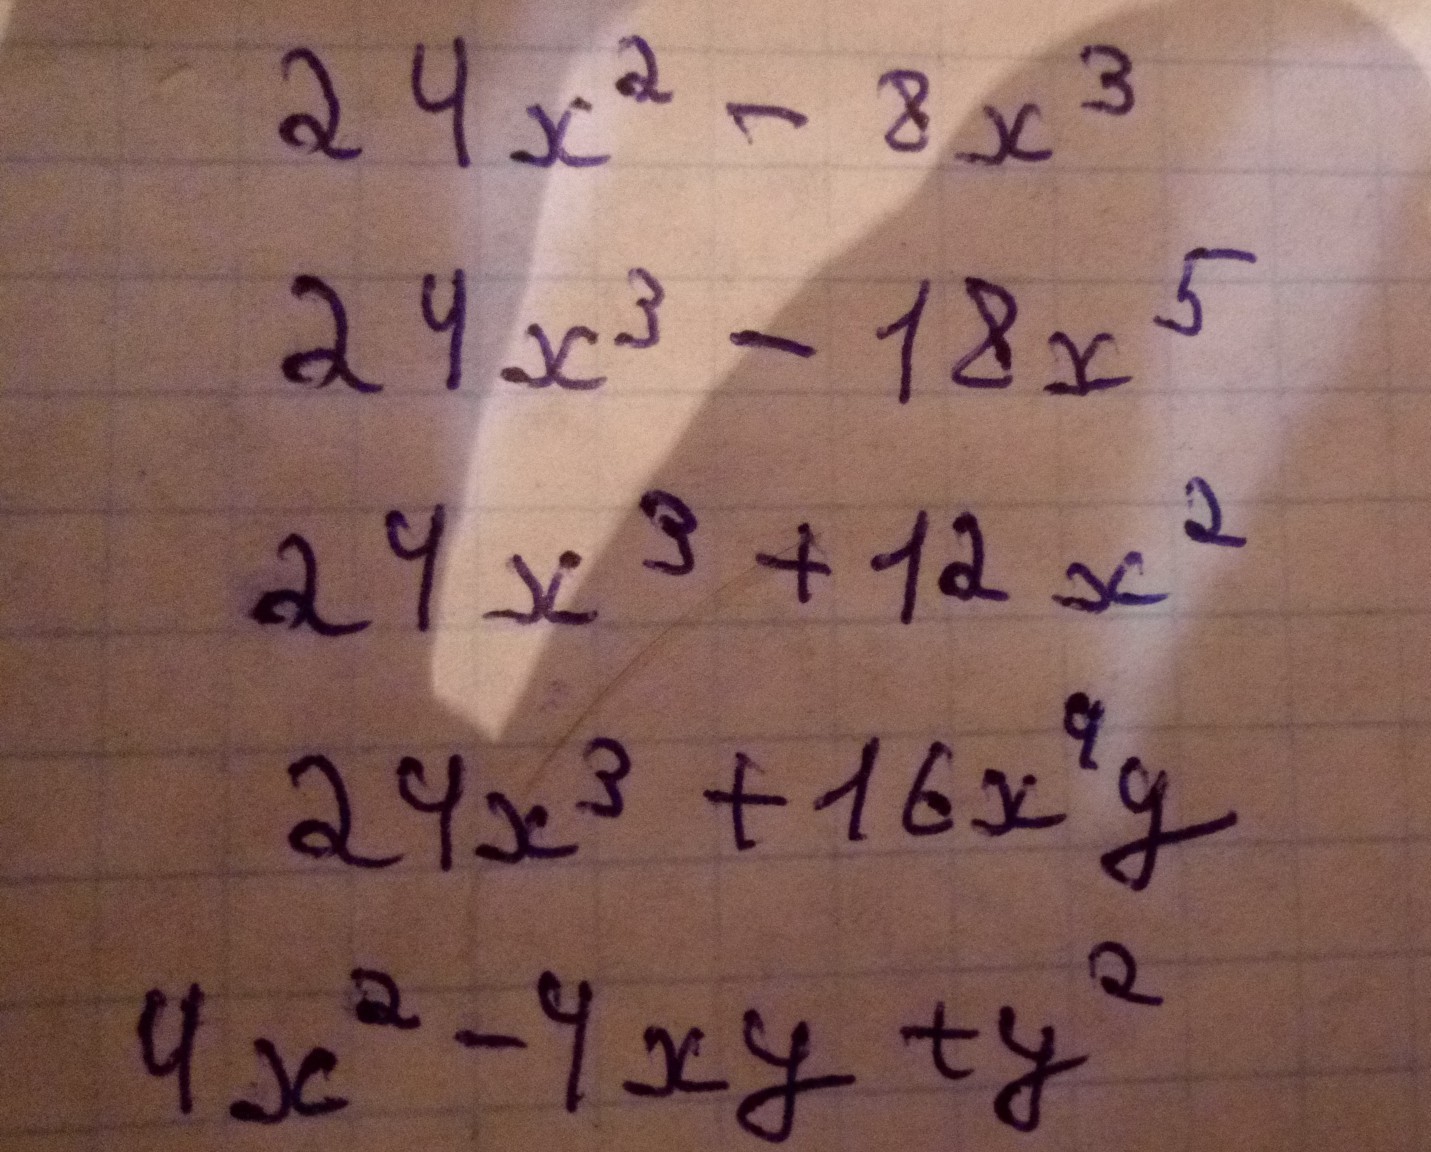 24x² - 8x³
24x³ - 18x⁵
24x³ + 12x²
24x³ + 16x⁴y
4x² - 4xy + y²